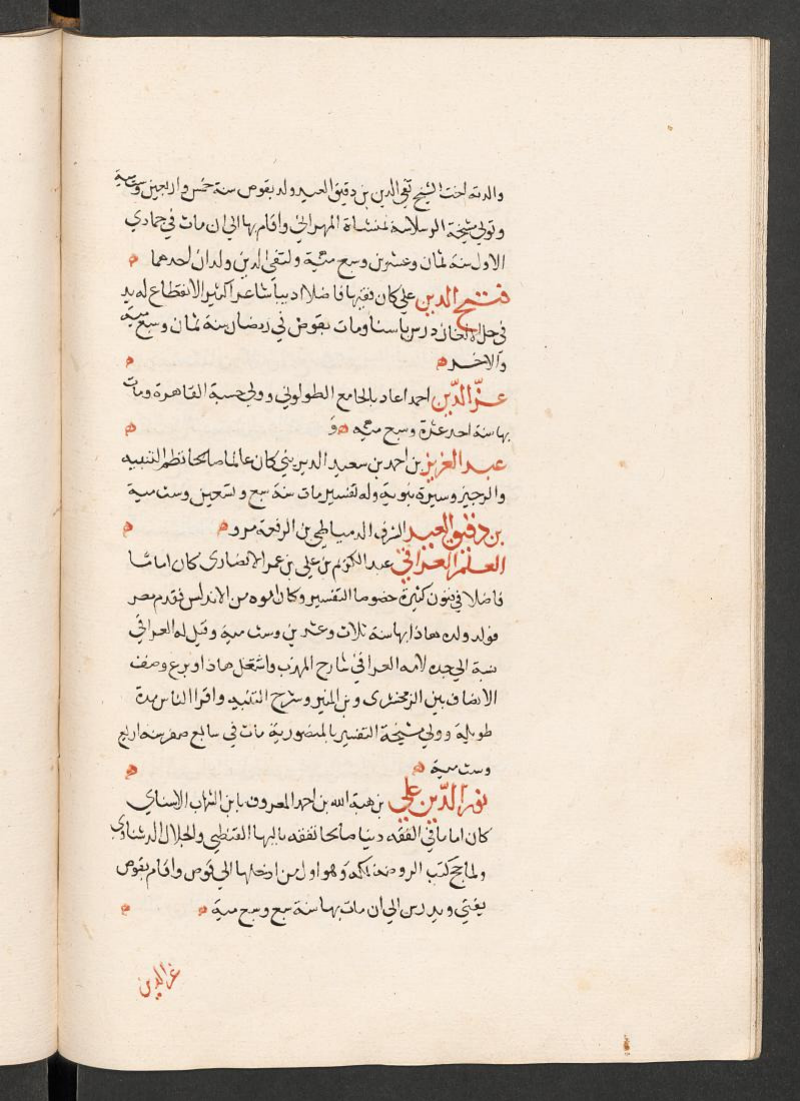 والدته اخت الشيخ تقي الدين بن دقيق العيد ولد بقوص سنة خمس واربعين وستمية
وتولي مشيخة الرسلانية بمنشاة المهراني واقام بها الي ان مات في جمادي
الاول سنة ثمان وعشرين وسبع مئية ولتقي الدين ولدان احدهما
فتح الدين علي كان فقيها فاضلا اديبا شاعرا كثير الانقطاع له يد
في حل الالغاز درس باسنا ومات بقوص في رمضان سنة ثمان وسبع مئية
والاخر
عز الدين احمد اعاد بالجامع الطولوني وولي حسبة القاهرة ومات
بها سنة احد عشرة وسبع مئية و
عبد العزيز بن احمد بن سعيد الديريني كان عالما صالحا نظم التنبيه
والوجيز وسيرة نبوية وله تفسير مات سنة سبع وتسعين وست مية
بن دقيق العيد الشرف الدمياطي بن الرفعة مروا
العلم العراقي عبد الكريم بن علي بن عمر الانصاري كان اماما
فاضلا في فنون كثيرة خصوصا التفسير وكان ابوه من الاندلس فقدم مصر
فولد ولده هاذا بها سنة ثلاث وعشرين وست مية وقيل له العراقي
نسبة الي جده لامه العراقي شارح المهذب واشتغل هاذا وبرع وصنف
الانصاف بين الزمخشري وبن المنير وشرح التنبيه واقرا الناس مدة
طويلة وولي مشيخة التفسير بالمنصورية مات في سابع صفر سنة اربع
وست مية
نور الدين علي بن هبة الله بن احمد المعروف بابن الشهاب الاسناي
كان اماما في الفقه دينا صالحا تفقه بالبها القفطي والجلال الدشناوي
ولما حج كتب الروضة بمكة وهو اول من ادخلها الي قوص واقام بقوص
يفتي ويدرس الي ان مات بها سنة سبع وسبع مية
عز الدين